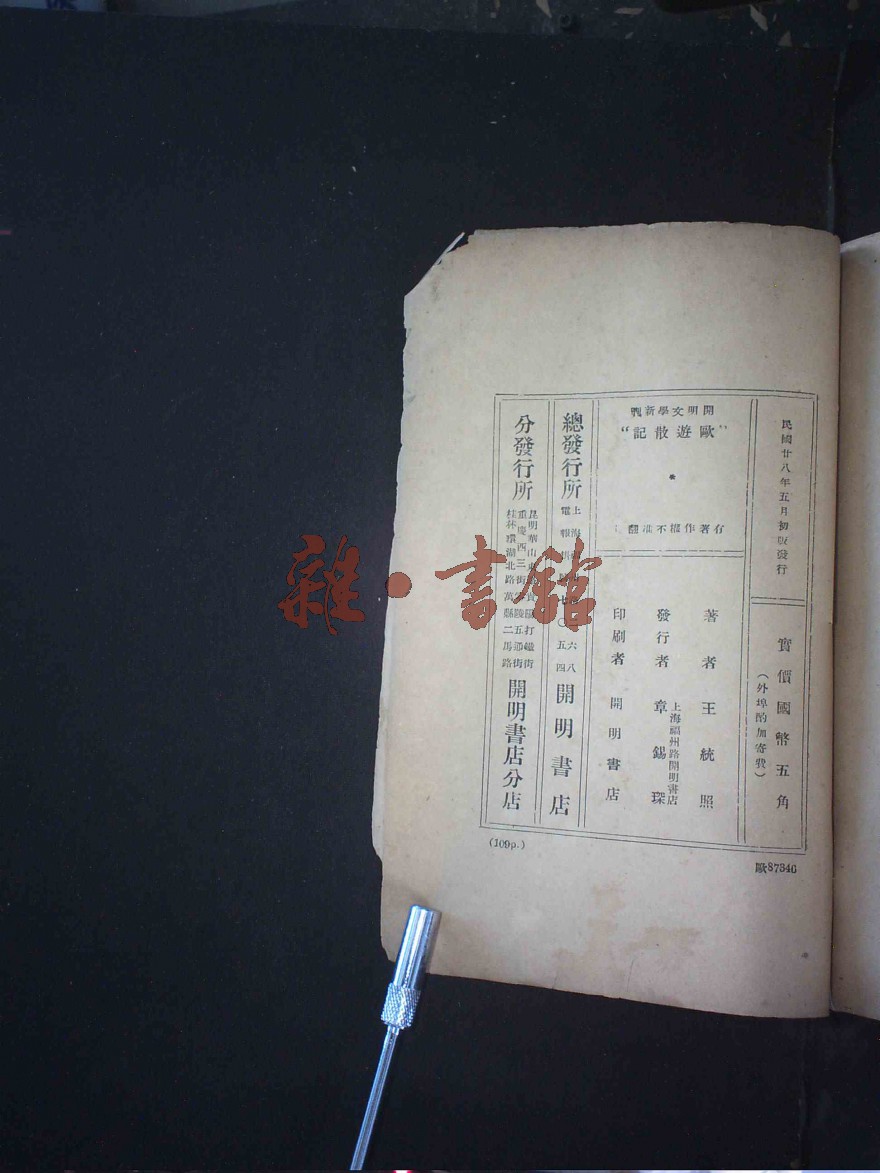 民國廿八年五月初版發行
實價國幣五角
(外埠酌加寄費)
開明文學新刊
“歐遊散記”
有著作權不准翻
著者 王統照
發行者 章錫琛
上海福州路開明書店
印刷者 開明書店
總發行所
上海
電報
七〇五四
六八
開明書店
分發行所
昆明華山
重慶西三街
桂林環湖北路
打銅街
萬縣二馬路
開明書店分店
(109p.)
歐87346
雜·書館